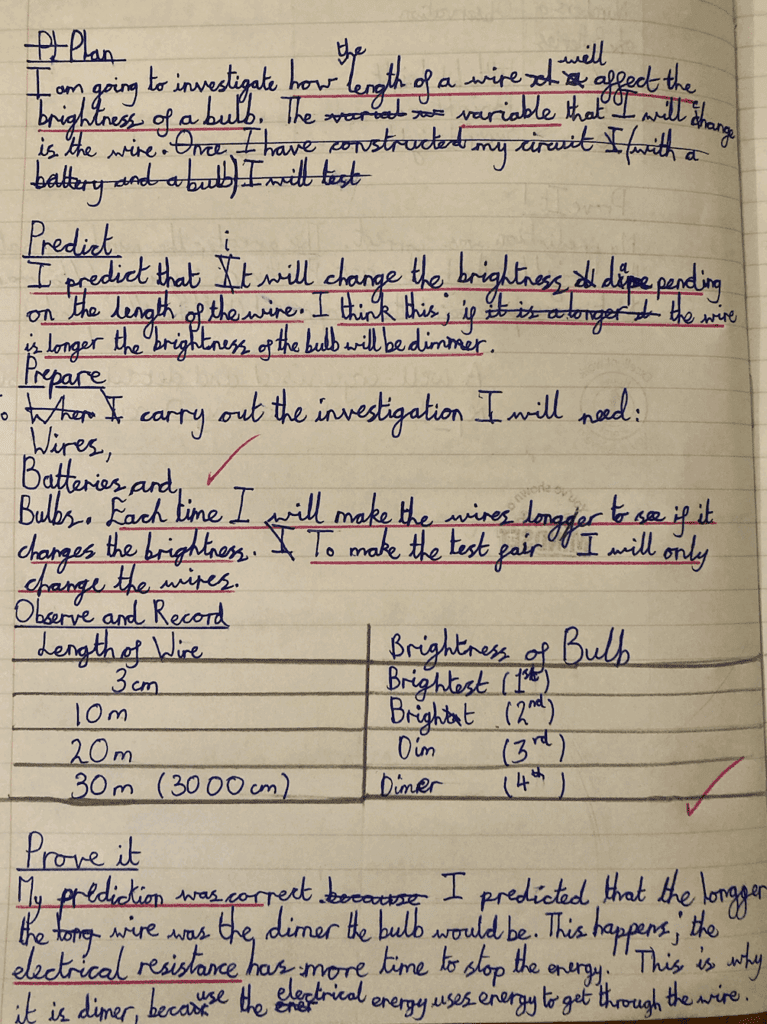 P) Plan
I am going to investigate how the length of a wire will affect the
brightness of a bulb. The variable that I will change
is the wire. Once I have constructed my circuit I (with a
battery and a bulb) I will test
Predict
I predict that it will change the brightness depending
on the length of the wire. I think this; if it is a longer the wire
is longer the brightness of the bulb will be dimmer.
Prepare
To When I carry out the investigation I will need:
Wires,
Batteries and
Bulbs. Each time I will make the wires longger to see if it
changes the brightness. I To make the test fair I will only
change the wires.
Observe and Record
Length of Wire Brightness of Bulb
3cm Brightest (1st)
10m Bright (2nd)
20m Dim (3rd)
30m (3000cm) Dimer (4th)
Prove it
My prediction was correct because I predicted that the longger
the long wire was the dimer the bulb would be. This happens; the
electrical resistance has more time to stop the energy. This is why
it is dimer, because the electrical energy uses energy to get through the wire.